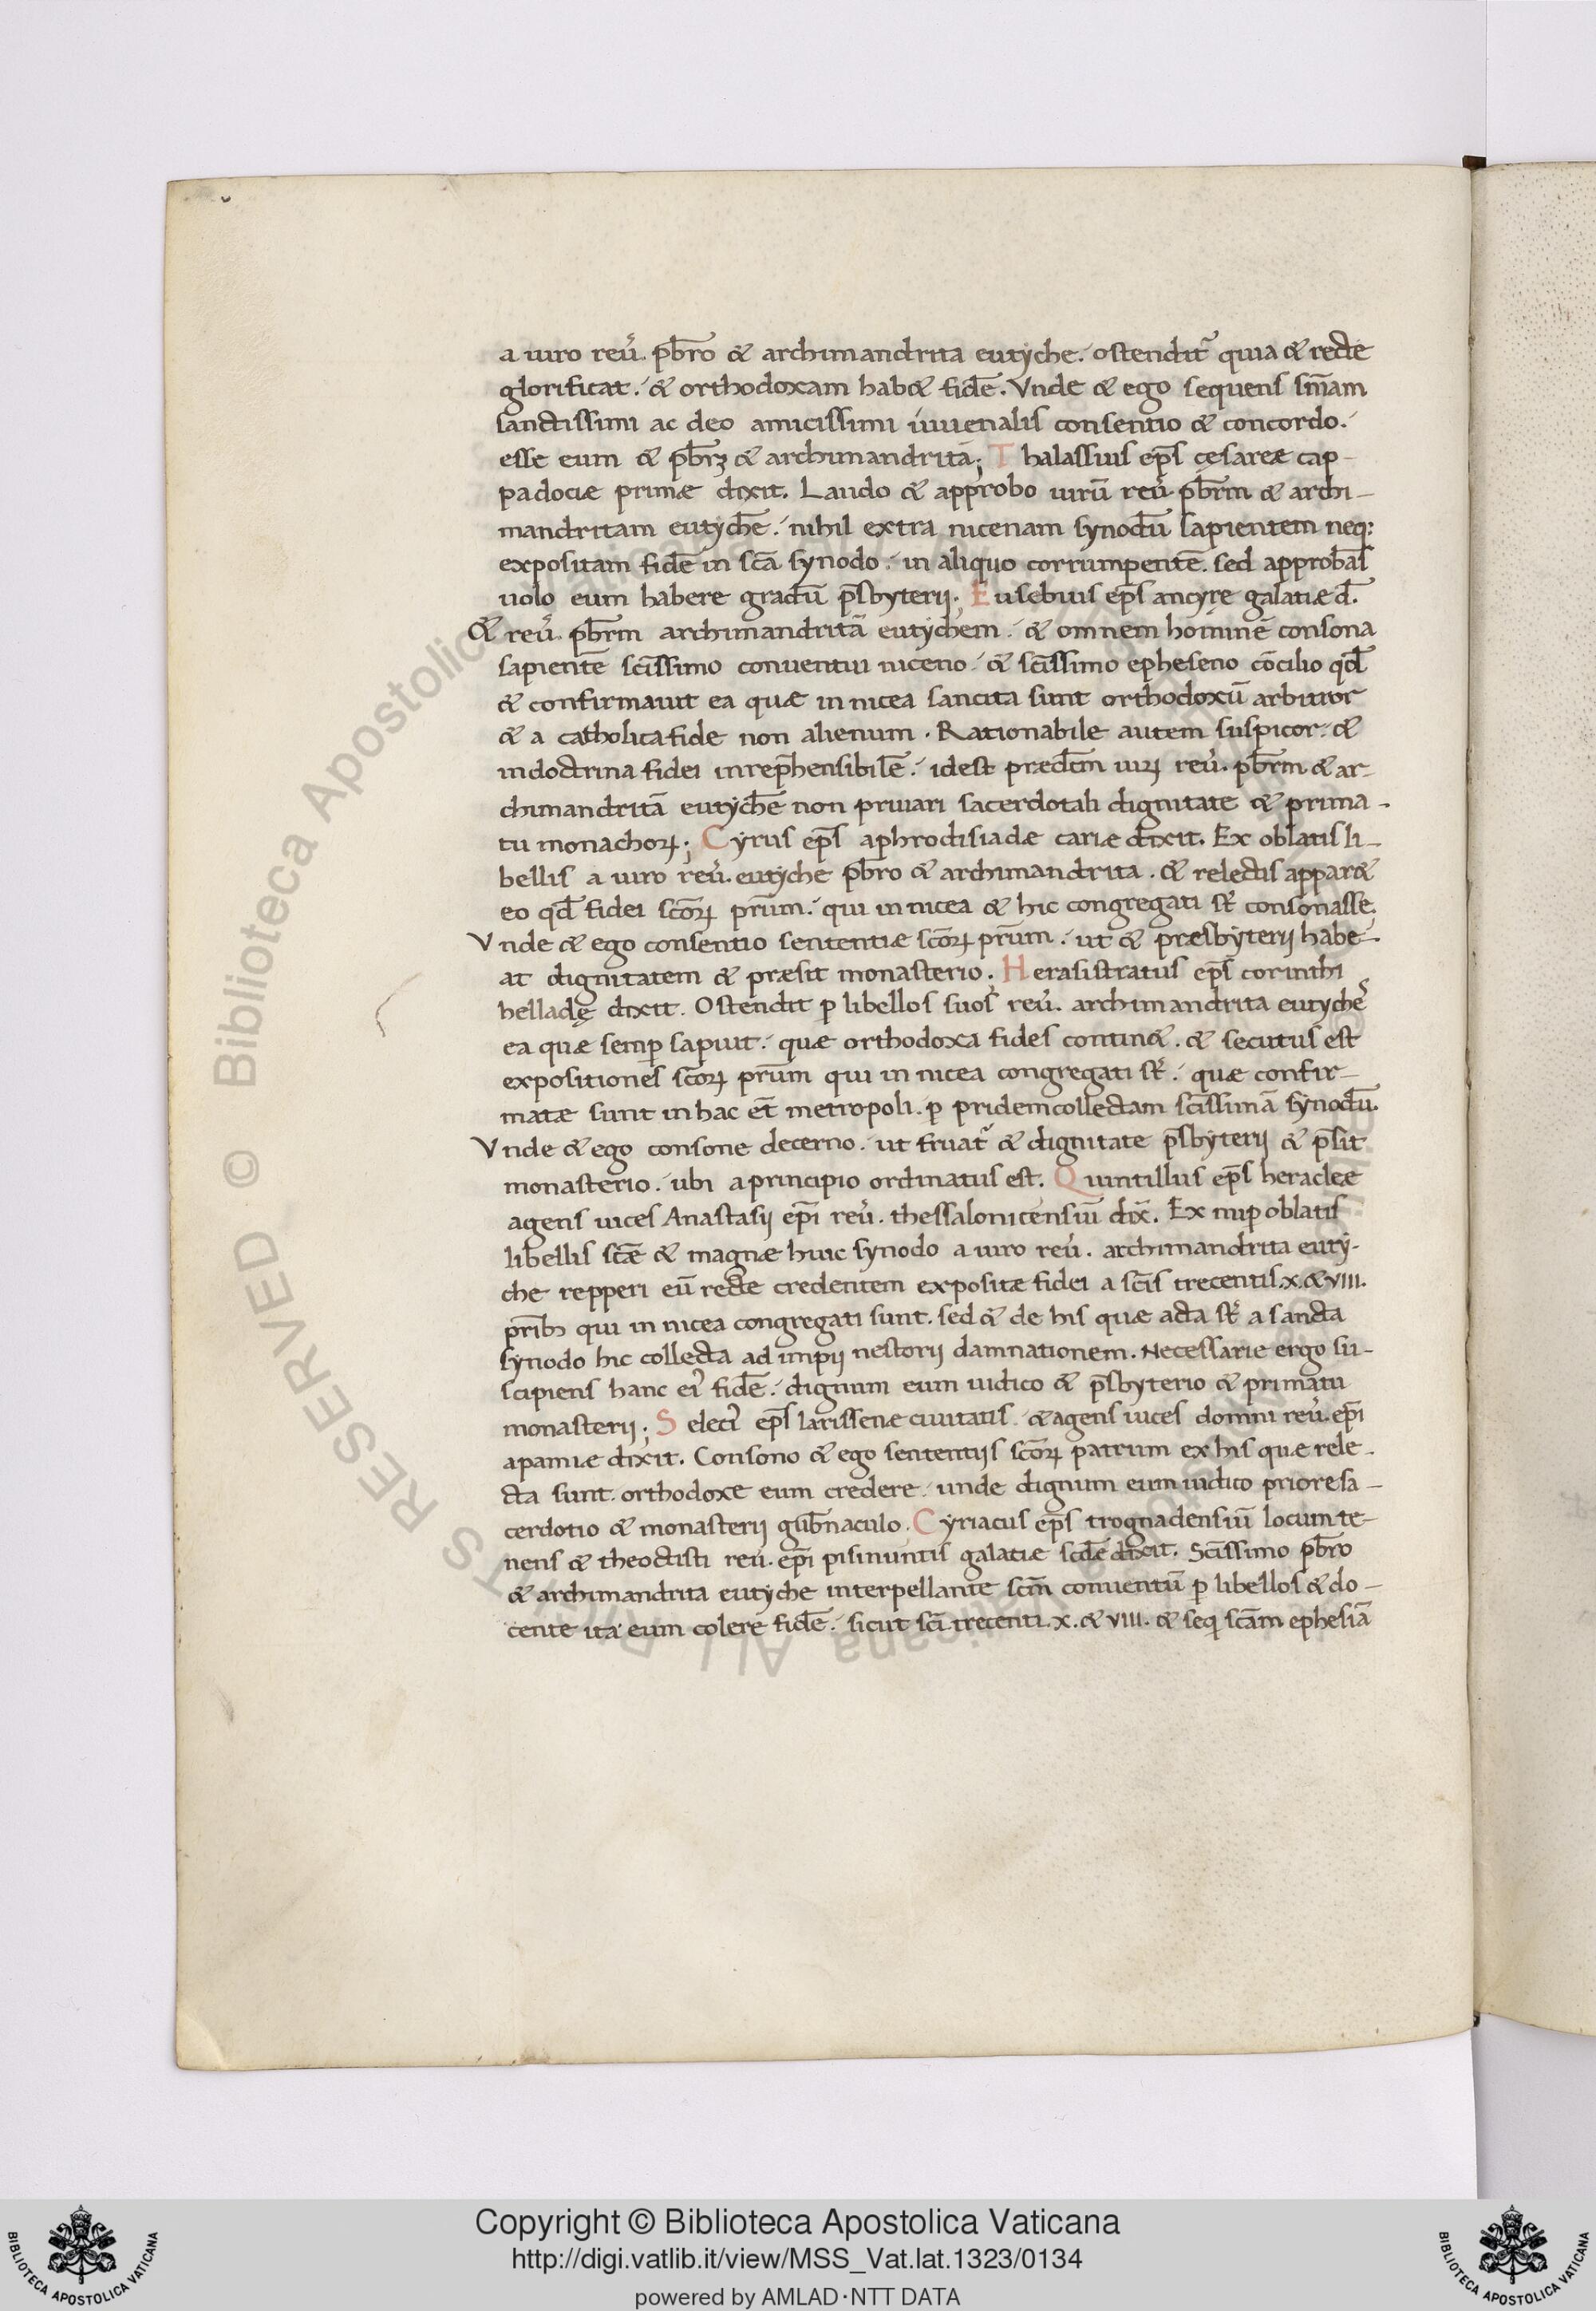 a uiro reu̓. pb̄ro & archimandrita eutyche. ostendit᷑ quia & recte
glorificat. & orthodoxam hab& fidē. Vnde & ego sequens sm̄am
sanctissimi ac deo amicissimi iuuenalis consentio & concordo.
esse eum & pb̄rȝ & archimandritā; Thalassius ep̄s cesareæ cap-
padociæ primæ dixit. Laudo & approbo uirū reu̓. pb̄rm & archi-
mandritam eutychē. nihil extra nicenam synodū sapientem neq:
expositam fidē in scā synodo. in aliquo corrumpentē. sed approbās
uolo eum habere gradū p̄sbyterij. Eusebius ep̄s ancyre galatiæ d̄.
& reu̓. pb̄rm archimandritā eutychem. & omnem hominē consona
sapientē scīssimo conuentui niceno. & scīssimo epheseno cōcilio qd̄
& confirmauit ea quæ in nicea sancita sunt orthodoxū arbitror
& a catholica fide non alienum. Rationabile autem suspicor. &
in doctrina fidei inrep̄hensibilē. idest prædc̄m uiꝝ reu̓. pb̄rm & ar-
chimandritā eutychē non priuari sacerdotali dignitate & prima-
tu monachoꝝ; Cyrus ep̄s aphrodisiadæ cariæ dixit. Ex oblatis li-
bellis a uiro reu̓. eutyche pb̄ro & archimandrita. & relectis appar&
eo qd̄ fidei scōꝝ pr̄um. qui in nicea & hic congregati st̓ consonasse.
Vnde & ego consentio sententiæ scōꝝ pr̄um. ut & præsbyterij habe-
at dignitatem & præsit monasterio; Herasistratus ep̄s corinthi
helladę dixit. Ostendit ꝑ libellos suos reu̓. archimandrita eutyche᷒
ea quæ semꝑ sapuit. quæ orthodoxa fides contin&. & secutus est
expositiones scōꝝ pr̄um qui in nicea congregati st̓. quæ confir-
matæ sunt in hac et̄ metropoli. ꝑ pridem collectam scīssimā synodū.
Vnde & ego consone decerno. ut fruat᷑ & dignitate p̄sbyterij & p̄sit
monasterio. ubi a principio ordinatus est. Quintillus ep̄s heracleæ
agens uices Anastasij ep̄i reu̓. thessalonicensiū dix̄. Ex nuꝑ oblatis
libellis scǣ & magnæ huic synodo a uiro reu̓. archimandrita euty-
che repperi eū recte credentem expositæ fidei a scīs trecentis. x. & VIII.
pr̄ibꝫ qui in nicea congregati sunt. sed & de his quæ acta st̓ a sancta
synodo hic collecta ad impij nestorij damnationem. Necessarie ergo su-
scipiens hanc ei᷒ fidē. dignum eum iudico & p̄sbyterio & primatu
monasterij; Seleci᷒ ep̄s larissenæ ciuitatis. & agens uices domni reu̓. ep̄i
apamiæ dixit. Consono & ego sententijs scōꝝ patrum ex his quæ rele-
cta sunt. orthodoxe eum credere. unde dignum eum iudico priore sa-
cerdotio & monasterij gub̄naculo. Cyriacus ep̄s trognadensiū locum te-
nens & theoctisti reu̓. ep̄i pisinuntis galatiæ scdē dixit. Scīssimo pb̄ro
& archimandrita eutyche interpellante scm̄ conuentū ꝑ libellos & do-
cente ita eum colere fidē. sicut scī trecenti. x. & VIII. & seq̓ scām ephesiā
Copyright © Biblioteca Apostolica Vaticana
http://digi.vatlib.it/view/MSS_Vat.lat.1323/0134
powered by AMLAD·NTT DATA